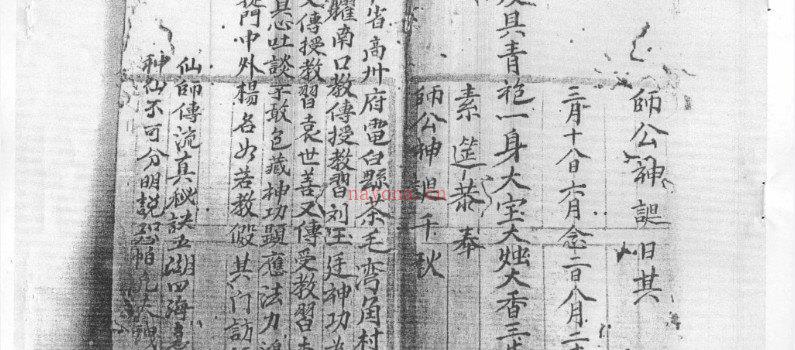 師公神誕日其
三月十八日六月念二日八月二
及具青袍一身大宝大烛大香三
素筵恭奉
師公神誕千秋
省高州府電白縣茶毛弯角村
耀南口教傳授教習刘王廷神功
又傳授教習袁世善又傳受教習
吐談 敢包藏神功顕應法力
門中外楊名 若教 其门訪
仙師傳流真秘訣五湖四海
神仙不可分明説恐 洩
nayona.cn